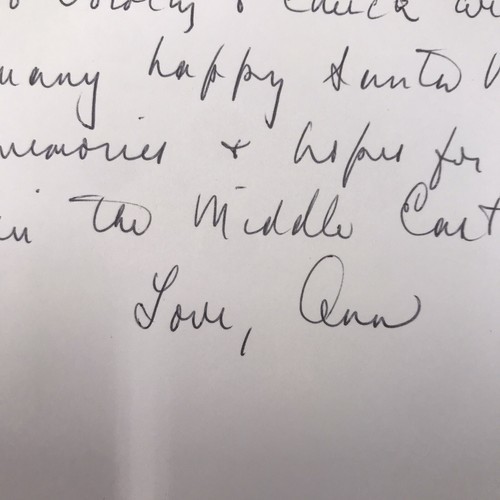 & Chuck
many happy Santa
memories & hopes for
in the Middle East
Love, Ann